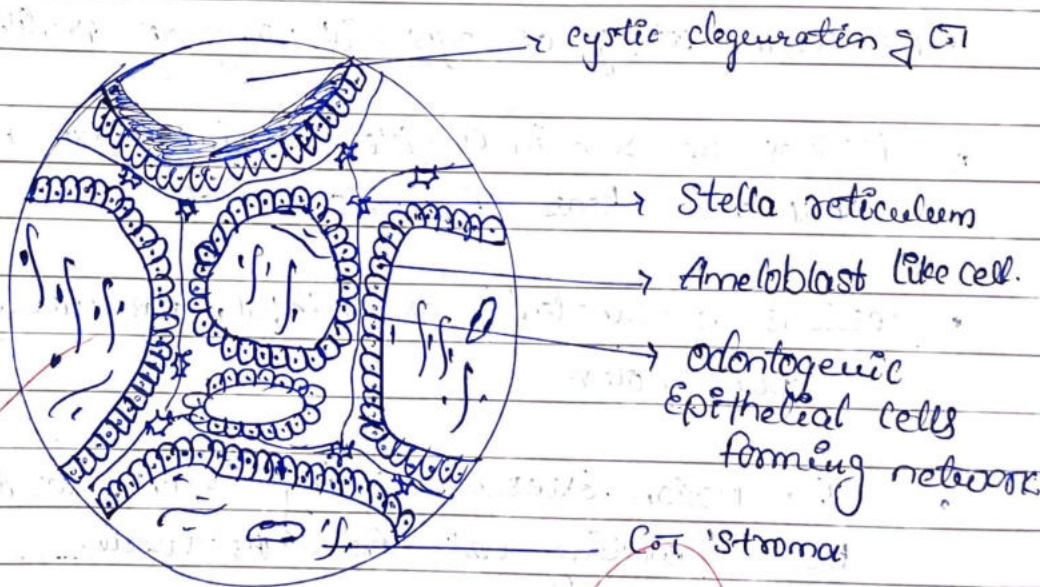 cystic degenration of CT
Stella reticulum
Ameloblast like cell.
odontogenic
Epithelial cells
forming network
C.T stroma